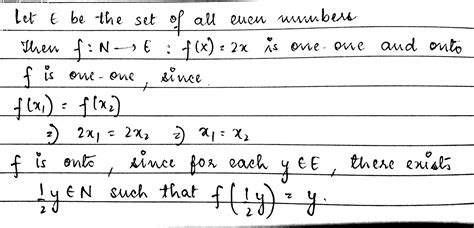 Let E be the set of all even numbers
Then f : N → E : f(x) = 2x is one-one and onto
f is one-one, since
f(x₁) = f(x₂)
⇒ 2x₁ = 2x₂ ⇒ x₁ = x₂
f is onto, since for each y ∈ E, there exists
1/2 y ∈ N such that f(1/2 y) = y.